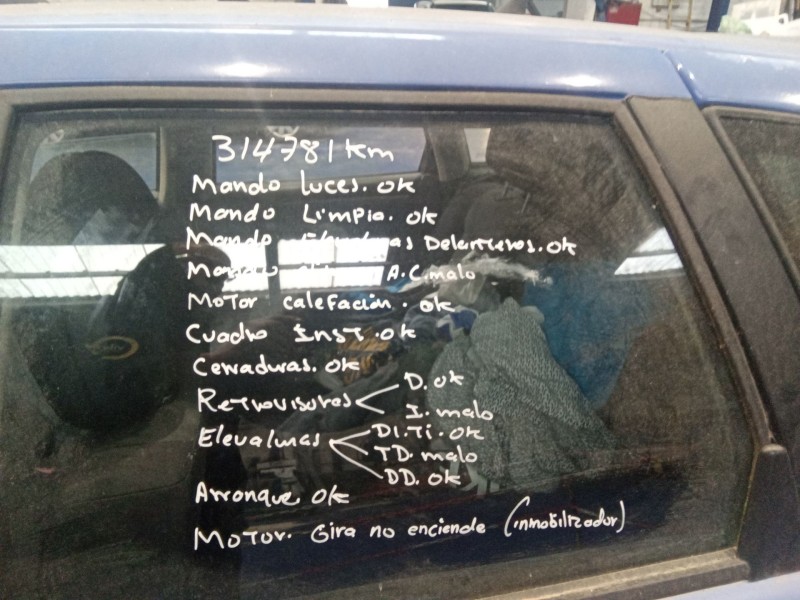 314781 km
Mando luces. ok
Mando Limpia. ok
Mando Elevalunas Delanteros. ok
Mando A.C. malo
Motor calefación. ok
Cuadro Inst. ok
Cerraduras. ok
Retrovisores D. ok
I. malo
Elevalunas DI. TI. ok
TD. malo
DD. ok
Arranque ok
Motor. Gira no enciende (inmobilizador)